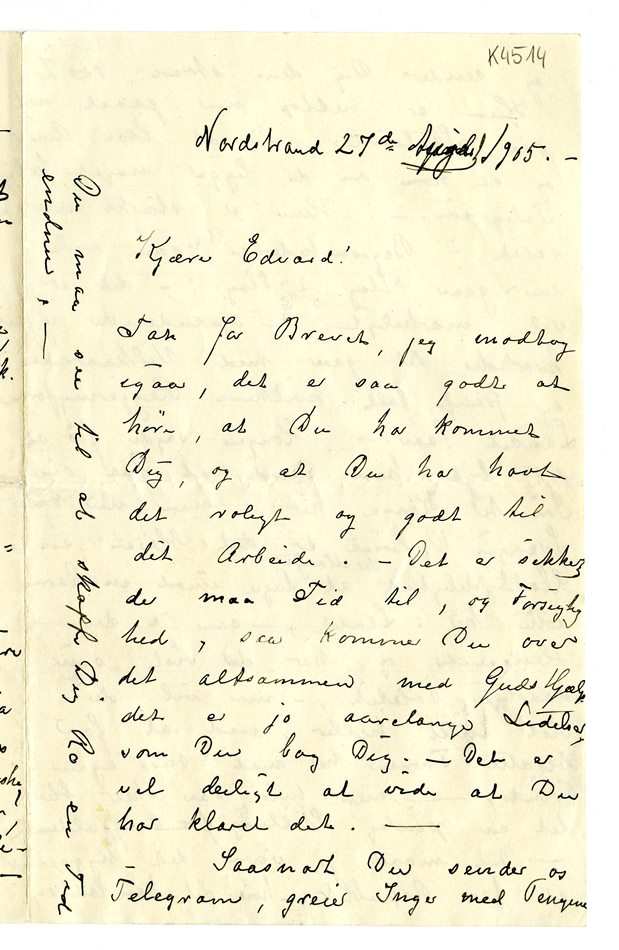 K4514
Nordstrand 27de 1905. –
Kjære Edvard!
Tak for Brevet, jeg modtog
igaar, det er saa godt at
höre, at Du har kommet
Dig, og at Du har havt
det roligt og godt til
dit Arbeide. – Det er sikkert
der maa Tid til, og Forsigtig
hed, saa kommer Du over
det altsammen med Guds Hjælp
det er jo aarelange Lidelser,
som Du bag Dig. – Det er
vel deiligt at vide at Du
har klaret det. —
Saasnart Du sender os
Telegram, greier Inger med Pengene
Du maa see til at skaffe Dig Ro en Tid
endnu, —